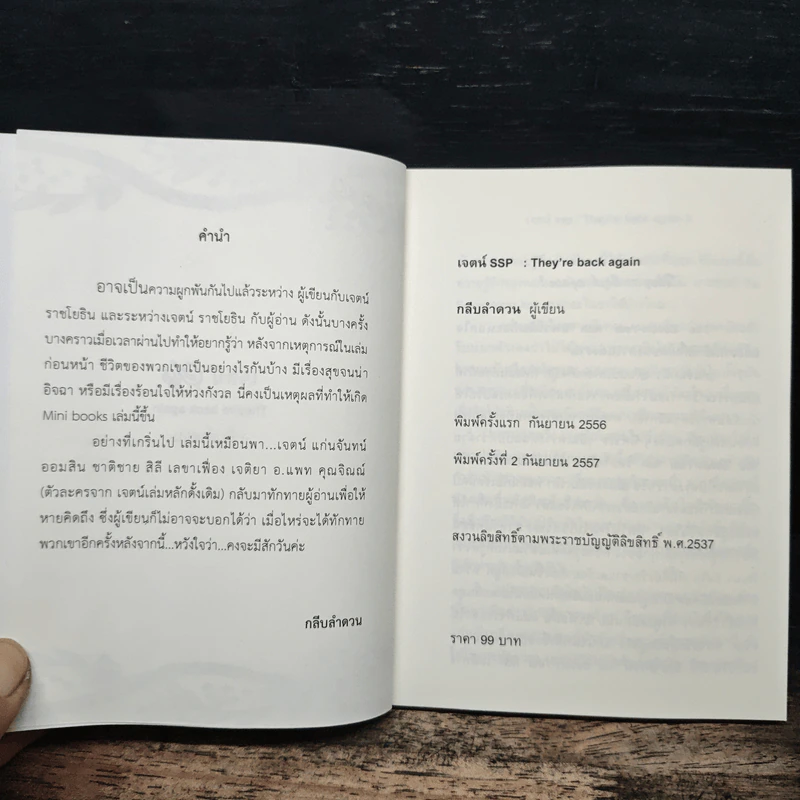 คำนำ
อาจเป็นความผูกพันกันไปแล้วระหว่าง ผู้เขียนกับเจตน์
ราชโยธิน และระหว่างเจตน์ ราชโยธิน กับผู้อ่าน ดังนั้นบางครั้ง
บางคราวเมื่อเวลาผ่านไปทำให้อยากรู้ว่า หลังจากเหตุการณ์ในเล่ม
ก่อนหน้า ชีวิตของพวกเขาเป็นอย่างไรกันบ้าง มีเรื่องสุขจนน่า
อิจฉา หรือมีเรื่องร้อนใจให้ห่วงกังวล นี่คงเป็นเหตุผลที่ทำให้เกิด
Mini books เล่มนี้ขึ้น
อย่างที่เกริ่นไป เล่มนี้เหมือนพา...เจตน์ แก่นจันทน์
ออมสิน ชาติชาย สิลี เลขาเฟื่อง เจติยา อ.แพท คุณจิณณ์
(ตัวละครจาก เจตน์เล่มหลักดั้งเดิม) กลับมาทักทายผู้อ่านเพื่อให้
หายคิดถึง ซึ่งผู้เขียนก็ไม่อาจจะบอกได้ว่า เมื่อไหร่จะได้ทักทาย
พวกเขาอีกครั้งหลังจากนี้...หวังใจว่า...คงจะมีสักวันค่ะ
กลีบลำดวน
เจตน์ SSP : They're back again
กลีบลำดวน ผู้เขียน
พิมพ์ครั้งแรก กันยายน 2556
พิมพ์ครั้งที่ 2 กันยายน 2557
สงวนลิขสิทธิ์ตามพระราชบัญญัติลิขสิทธิ์ พ.ศ.2537
ราคา 99 บาท